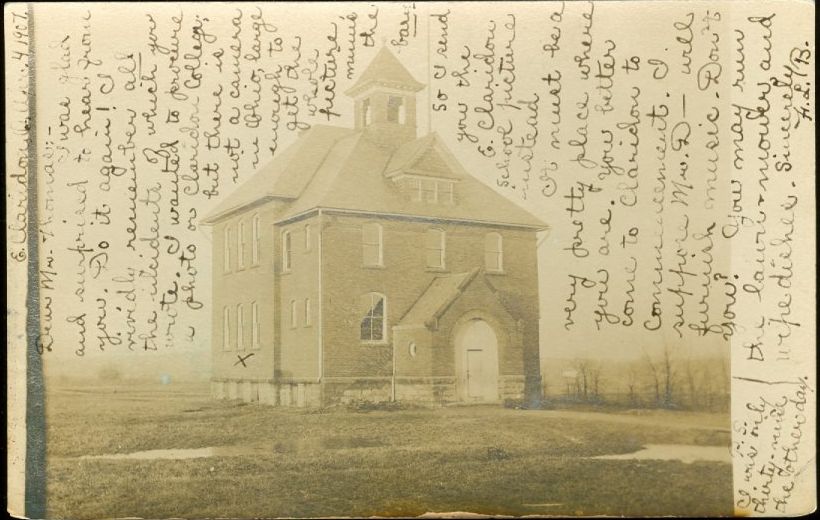 E. Claridon, O. 4 1907.
Dear Mr. Thomas;-
I was glad
and surprised to hear from
you. Do it again! I
vividly remember all
the incidents of which you
write. I wanted to procure
a photo or Claridon College;
but there is
not a camera
in Ohio, large
enough to
get the
whole
picture
minus
the
barn
So I send
you the
E. Claridon
school picture
instead
It must be a
very pretty place where
you are. You better
come to Claridon to
Commencement. I
suppose Mr. D— will
furnish music. Don't
you? You may run
the lawn-mower and
wipe dishes. Sincerely,
H. L. B.
P.S.
I was only
thirty-nine
the other day.
X